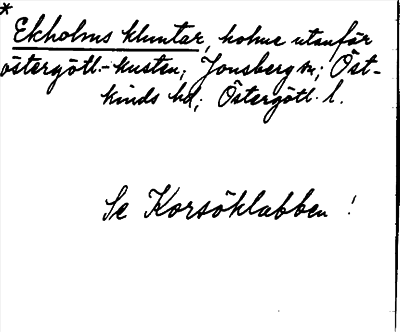 *
Ekholms kluntar, holme utanför
östergötl.-kusten; Jonsberg sn; Öst-
kinds hd; Östergötl. l.
Se Korsöklabben !